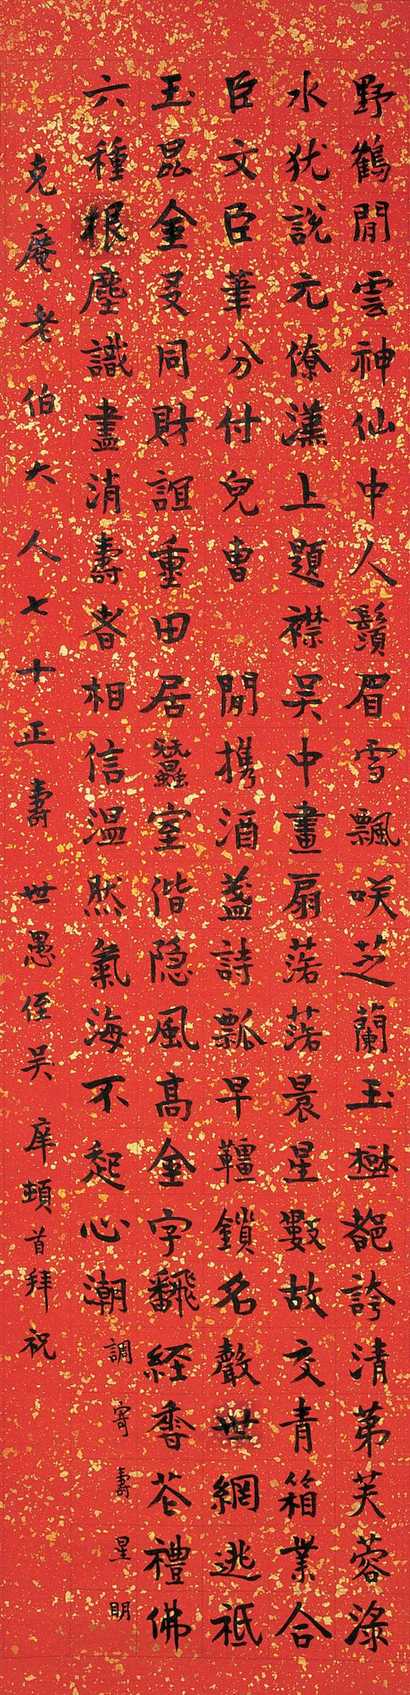 野鶴閒雲神仙中人鬚眉雪飄咲芝蘭玉樹艷誇清第芙蓉淥
水犹説元僚漢上題襟吴中畫扇落落晨星數故交青箱業合
臣文臣筆分付兒曹 閒携酒盞詩瓢早韁鎖名聲世網逃祗
玉昆金友同財誼重田居蠶室偕隐風高金字翻経香花禮佛
六種根塵識盡消壽者相信温然氣海不起心潮 調寄壽星明
克庵老伯大人七十正壽 世愚侄吴庠頓首拜祝